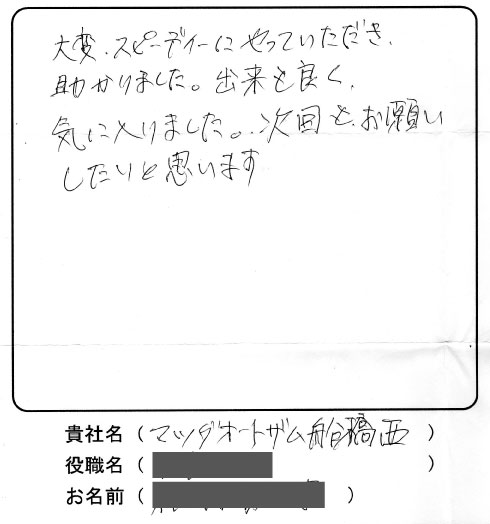 大変、スピーディーにやっていただき、
助かりました。出来も良く、
気に入りました。次回も、お願い
したいと思います
貴社名（マツダオートザム船橋西）
役職名（ ）
お名前（ ）